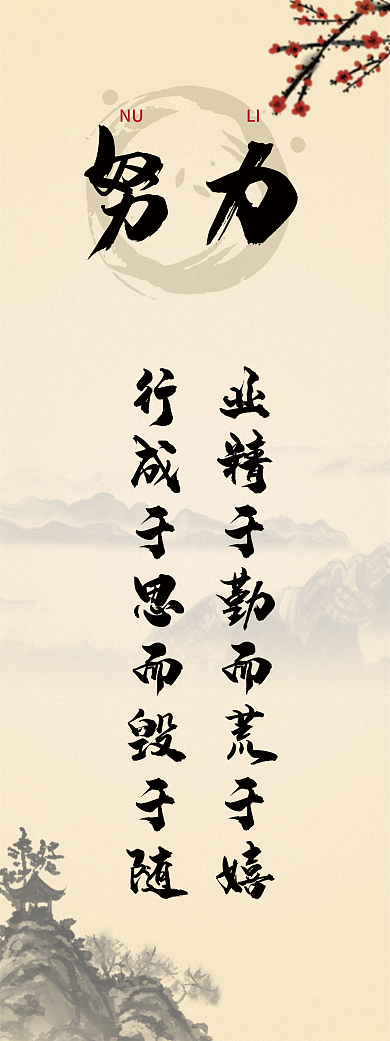 NU LI
努力
业精于勤而荒于嬉
行成于思而毁于随